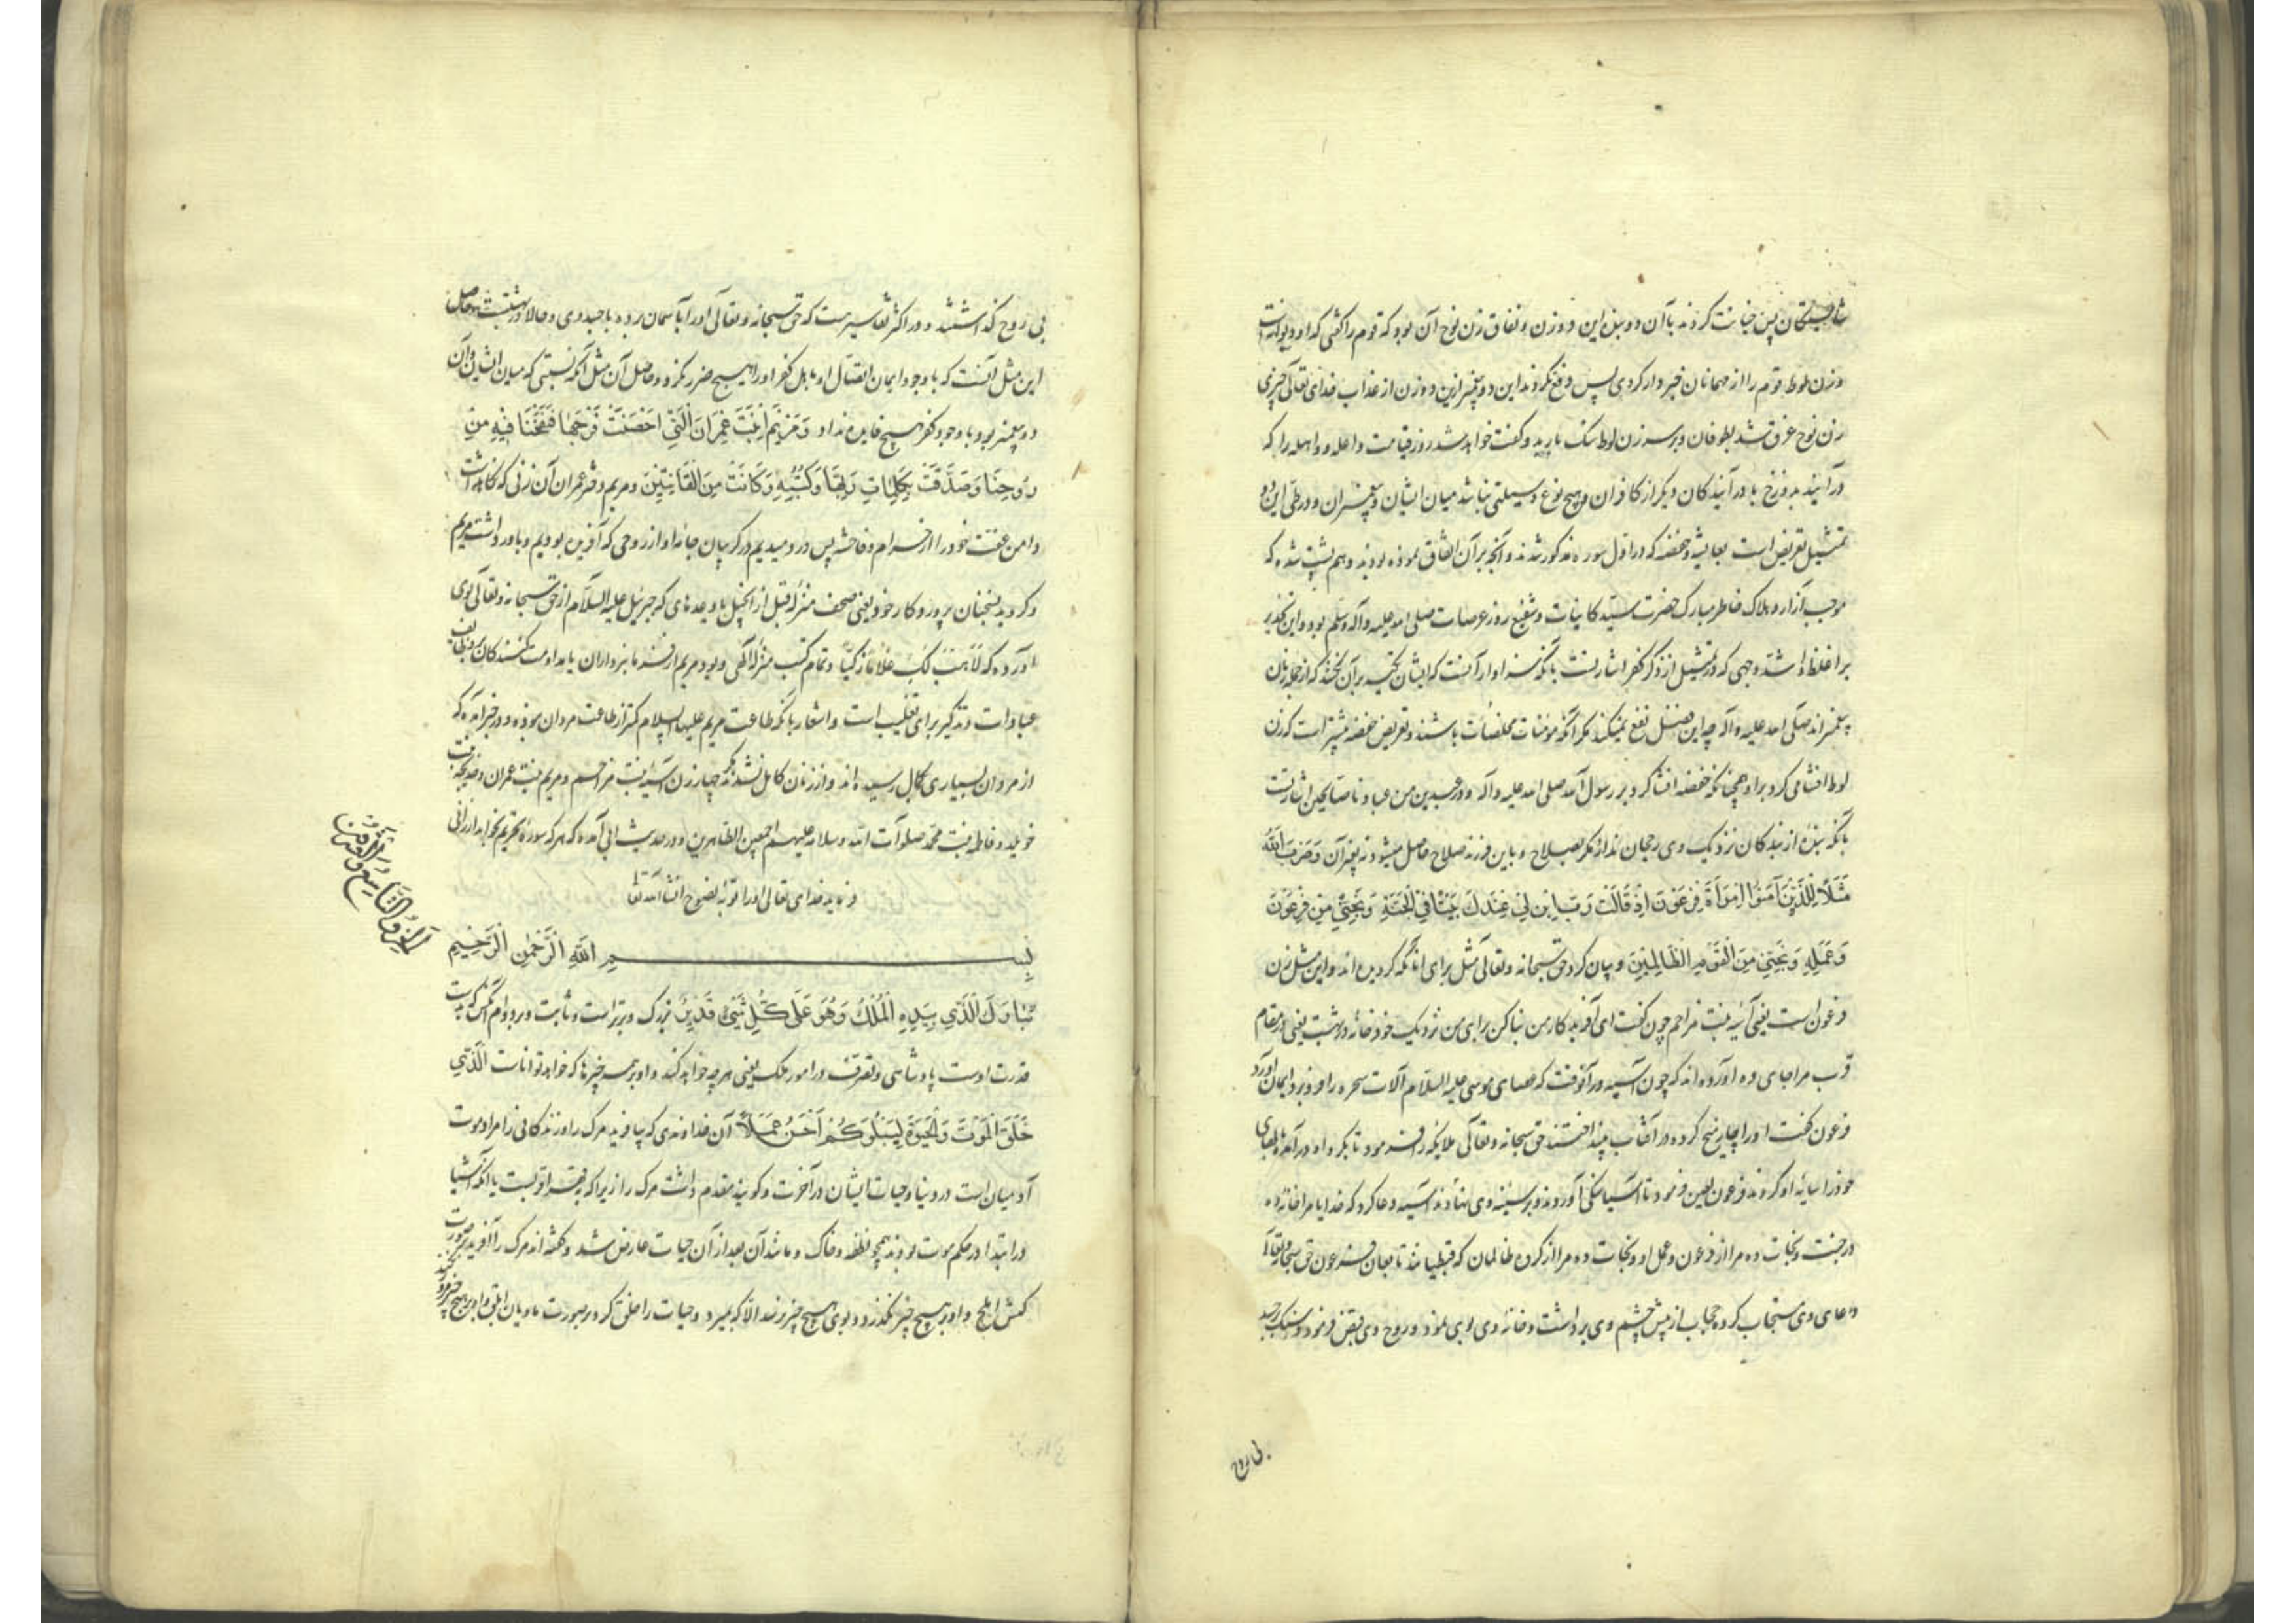 شایستگان پس خیانت کردند باآن دو بنده این دو زن و نفاق زن نوح آن بود که قوم را گفتی که او دیوانه است
و زن لوط قوم را از مهمانان خبردار کردی پس دفع نکردند این دو پیغمبر ازین دو زن از عذاب خدای تعالی چیزی
زن نوح غرق شد بطوفان و بر سر زن لوط سنک بارید و گفت خواهد شد روز قیامت واعله و واهله را که
درآئید بدوزخ با درآیندکان دیگر از کافران و هیچ نوع وسیلتی نباشد میان ایشان و پیغمبران و در طی این دو
تمثیل تعریض است بعایشه و حفصه که در اول سوره مذکور شدند و آنچه بر آن اتفاق نموده بودند و هم پشت شده که
موجب آزار و هلاک خاطر مبارک حضرت سید کاینات و شفیع روز عرصات صلی الله علیه وآله وسلم بود و این تحذیر
بر اغلظ و اشد وجهی که در تمثیل از ذکر کفر اشارتست بانکه سزاوار آنست که ایشان تکیه بر آن نکنند که از جمله زنان
پیغمبراند صلی الله علیه وآله چه این فضل نفع نمیکند مگر آنکه مؤمنات مخلصات باشند و تعریض حفصه بیشتر است که زن
لوط افشا می کرد بر او همچنانکه حفصه افشا کرد بر رسول الله صلی الله علیه وآله و در عبدین من عبادنا صالحین اشارتست
بانکه بنده از بندکان نزدیک وی رجحان ندارد مگر بصلاح و باین قرب صلاح حاصل میشود نه بغیر آن وَضَرَبَ اللَّهُ
مَثَلًا لِلَّذِينَ آمَنُوا امْرَأَةَ فِرْعَوْنَ اِذْ قَالَتْ رَبِّ ابْنِ لِي عِنْدَكَ بَيْتًا فِي الْجَنَّةِ وَنَجِّنِي مِنْ فِرْعَوْنَ
وَعَمَلِهِ وَنَجِّنِي مِنَ الْقَوْمِ الظَّالِمِينَ و بیان کرد حق سبحانه و تعالی مثل برای آنانکه گرویده اند و این مثل زن
فرعون است یعنی آسیه بنت مزاحم چون گفت ای آفریدکار من بنا کن برای من نزدیک خود خانه در بهشت یعنی در مقام
قرب مرا جای ده آورده اند که چون آسیه در آنوقت که عصای موسی علیه السلام آلات سحره را فرو برد ایمان آورد
فرعون گفت او را چهار میخ کرده در آفتاب بینداختند حق سبحانه و تعالی ملایکه را فرمود تا بکرد او درآمده ببالهای
خود را سایه او کردند فرعون لعین فرمود تا آسیا سنکی آوردند و بر سینه وی نهادند آسیه دعا کرد که خدایا مرا خانه ده
در جنت و نجات ده مرا از فرعون و عمل او و نجات ده مرا از کروه ظالمان که قبطیانند تابعان فرعون حق سبحانه و تعالی
دعای وی مستجاب کرده حجاب از پیش چشم وی برداشت و خانه وی بوی نمود و روح وی قبض فرمود و سنک بر جسد
بی روح
بی روح گذاشتند و در اکثر تفاسیر هست که حق سبحانه و تعالی او را بآسمان برده با جسد وی و حالا در بهشتست و حاصل
این مثل آنست که با وجود ایمان اتصال او باهل کفر او را هیچ ضرر نکرد و حاصل آن مثل آنکه نسبتی که میان ایشان و آن
دو پیغمبر بود با وجود کفر هیچ فایده نداد وَمَرْيَمَ ابْنَتَ عِمْرَانَ الَّتِي اَحْصَنَتْ فَرْجَهَا فَنَفَخْنَا فِيهِ مِنْ
رُوحِنَا وَصَدَّقَتْ بِكَلِمَاتِ رَبِّهَا وَكُتُبِهِ وَكَانَتْ مِنَ الْقَانِتِينَ و مریم دختر عمران آن زنی که نکاهداشت
دامن عفت خود را از حرام و فاحشه پس در دمیدیم در کریبان جامه او از روحی که آفریده بودیم و باور داشت مریم
و کروید بسخنان پروردکار خود یعنی صحف منزله قبل از انجیل یا وعدهای که جبرئیل علیه السلام از حق سبحانه و تعالی بوی
آورده که لِاَهَبَ لَكِ غُلَامًا زَكِيًّا و تمام کتب منزله الهی و بود مریم از فرمانبرداران یا مداومت کنندکان بر وظایف
عبادات و تذکیر برای تغلیب است و اشعار بانکه طاعت مریم علیها السلام کمتر از طاعت مردان نبوده و در خبر آمده که
از مردان بسیاری بکمال رسیده اند و از زنان کامل نشدند مگر چهار زن آسیه بنت مزاحم و مریم بنت عمران و خدیجه بنت
خویلد و فاطمه بنت محمد صلوات الله وسلامه علیهم اجمعین الطاهرین و در حدیث ابی آمده که هر که سوره تحریم بخواند ارزانی
فرماید خدای تعالی او را توبه نصوح انشاء الله تعالی
بِسْمِ اللهِ الرَّحْمٰنِ الرَّحِيمِ
الجزؤ التاسع والعشرون
تَبَارَكَ الَّذِي بِيَدِهِ الْمُلْكُ وَهُوَ عَلَى كُلِّ شَيْءٍ قَدِيرٌ بزرک و برتر است و ثابت و بر دوام آنکس که بدست
قدرت اوست پادشاهی و تصرف در امور ملک یعنی هر چه خواهد کند و او بر همه چیزها که خواهد تواناست الَّذِي
خَلَقَ الْمَوْتَ وَالْحَيٰوةَ لِيَبْلُوَكُمْ اَيُّكُمْ اَحْسَنُ عَمَلًا آن خداوندی که بیافرید مرک را و زندکانی را مراد موت
آدمیان است در دنیا و حیات ایشان در آخرت و کویند مقدم داشت مرک را زیرا که بقهر اقربست یا آنکه اشیا
در ابتدا در حکم موت بودند همچو نطفه و خاک و مانند آن بعد از آن حیات عارض شد و گفته اند مرک را آفرید بر صورت
کبش املح و او بر هیچ چیز نکذرد و بوی هیچ چیز نرسد الا که بمیرد و حیات را خلق کرد بر صورت مادیان ابلق و او بر هیچ چیز مرور نکند